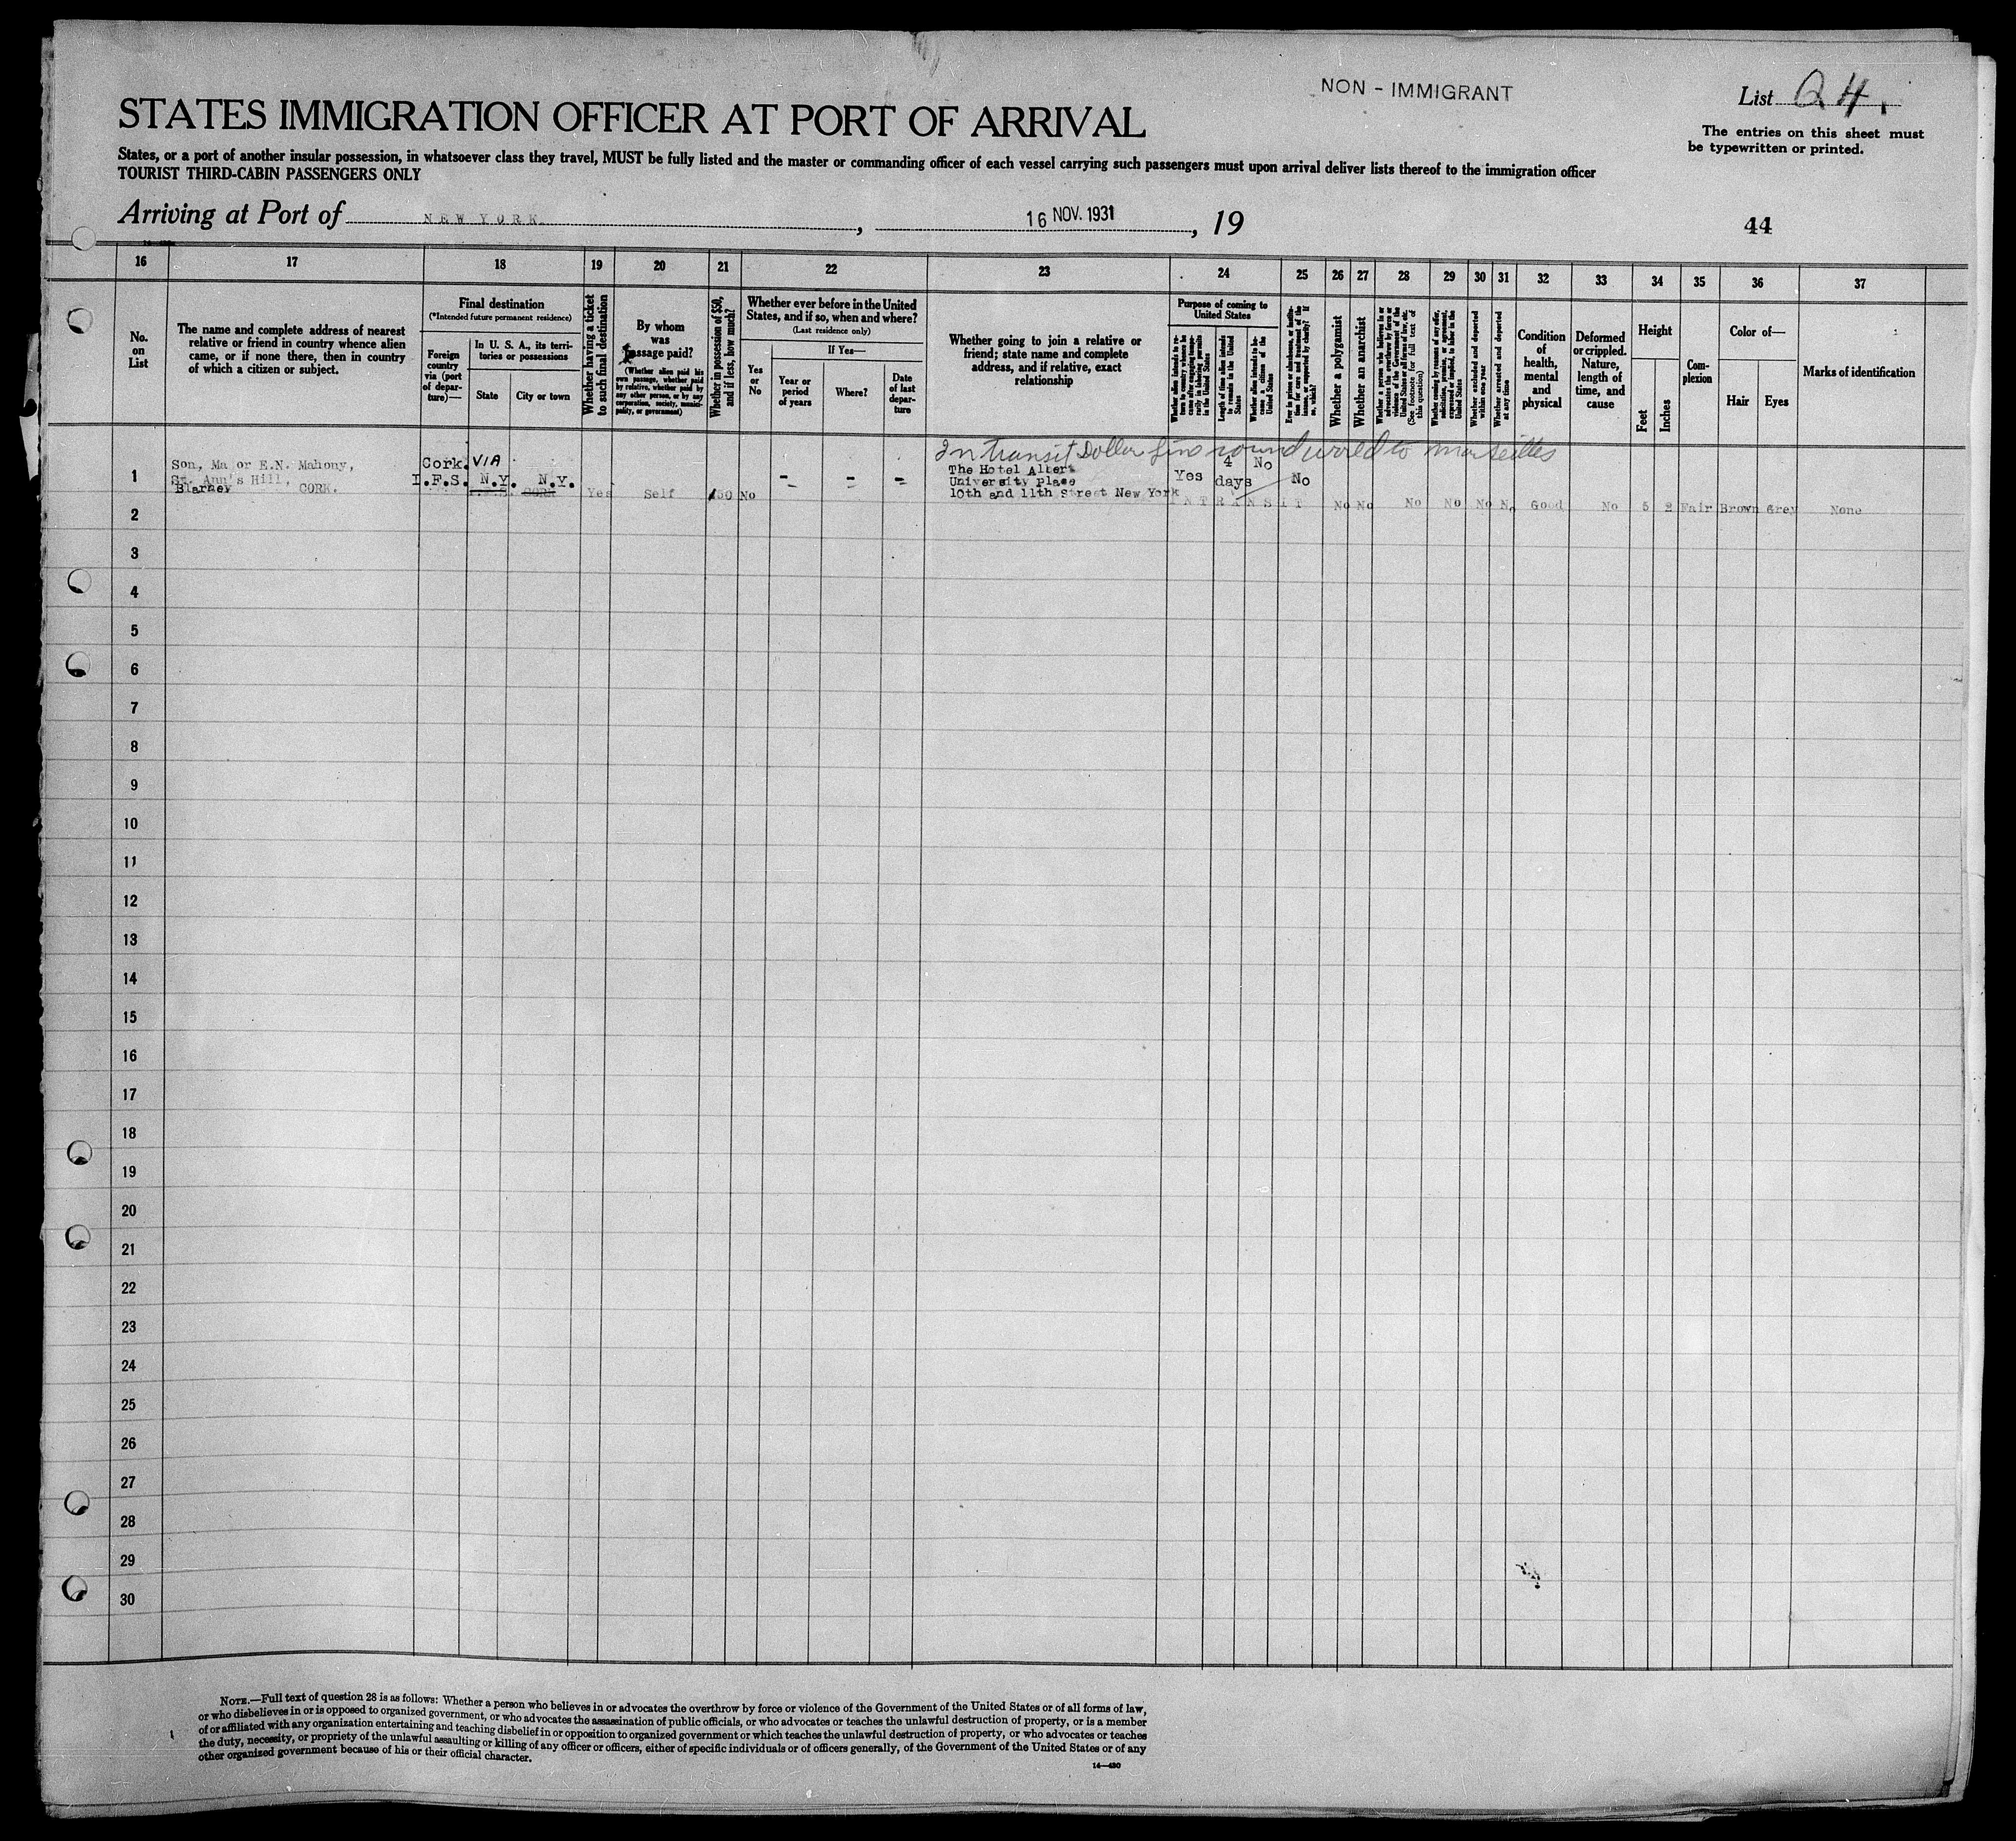 NON - IMMIGRANT
List Q 4.
STATES IMMIGRATION OFFICER AT PORT OF ARRIVAL
The entries on this sheet must
be typewritten or printed.
States, or a port of another insular possession, in whatsoever class they travel, MUST be fully listed and the master or commanding officer of each vessel carrying such passengers must upon arrival deliver lists thereof to the immigration officer
TOURIST THIRD-CABIN PASSENGERS ONLY
Arriving at Port of NEW YORK. , 16 NOV. 1931 , 19
44
16 17 18 19 20 21 22 23 24 25 26 27 28 29 30 31 32 33 34 35 36 37
No.
on
List
The name and complete address of nearest
relative or friend in country whence alien
came, or if none there, then in country
of which a citizen or subject.
Final destination
(*Intended future permanent residence)
Foreign
country
via (port
of depar-
ture)—
In U. S. A., its terri-
tories or possessions
State
City or town
Whether having a ticket
to such final destination
By whom
was
passage paid?
(Whether alien paid his
own passage, whether paid
by relative, whether paid by
any other person, or by any
corporation, society, munici-
pality, or government)
Whether in possession of $50,
and if less, how much?
Whether ever before in the United
States, and if so, when and where?
(Last residence only)
Yes
or
No
If Yes—
Year or
period
of years
Where?
Date
of last
depar-
ture
Whether going to join a relative or
friend; state name and complete
address, and if relative, exact
relationship
Purpose of coming to
United States
Whether alien intends to re-
turn to country whence he
came after engaging tempo-
rarily in laboring pursuits
in the United States
Length of time alien intends
to remain in the United
States
Whether alien intends to be-
come a citizen of the
United States
Ever in prison or almshouse, or institu-
tion for care and treatment of the
insane, or supported by charity? If
so, which?
Whether a polygamist
Whether an anarchist
Whether a person who believes in or
advocates the overthrow by force or
violence of the Government of the
United States or all forms of law, etc.
(See footnote for full text of
this question)
Whether coming by reasons of any offer,
solicitation, promise, or agreement,
expressed or implied, to labor in the
United States
Whether excluded and deported
within one year
Whether arrested and deported
at any time
Condition
of
health,
mental
and
physical
Deformed
or crippled.
Nature,
length of
time, and
cause
Height
Feet
Inches
Com-
plexion
Color of—
Hair
Eyes
Marks of identification
In transit Dollar Line round world to Marseilles
1 Son, Major E.N. Mahony, Cork. VIA The Hotel Albert 4 No
St. Ann's Hill, I.F.S. N.Y. N.Y. University Place Yes days No
Blarney CORK. CORK Yes Self 50 No - - - 10th and 11th Street New York
2 TRANSIT No No No No No No Good No 5 2 Fair Brown Grey None
3
4
5
6
7
8
9
10
11
12
13
14
15
16
17
18
19
20
21
22
23
24
25
26
27
28
29
30
NOTE.—Full text of question 28 is as follows: Whether a person who believes in or advocates the overthrow by force or violence of the Government of the United States or of all forms of law,
or who disbelieves in or is opposed to organized government, or who advocates the assassination of public officials, or who advocates or teaches the unlawful destruction of property, or is a member
of or affiliated with any organization entertaining and teaching disbelief in or opposition to organized government or which teaches the unlawful destruction of property, or who advocates or teaches
the duty, necessity, or propriety of the unlawful assaulting or killing of any officer or officers, either of specific individuals or of officers generally, of the Government of the United States or of any
other organized government because of his or their official character.
14—430